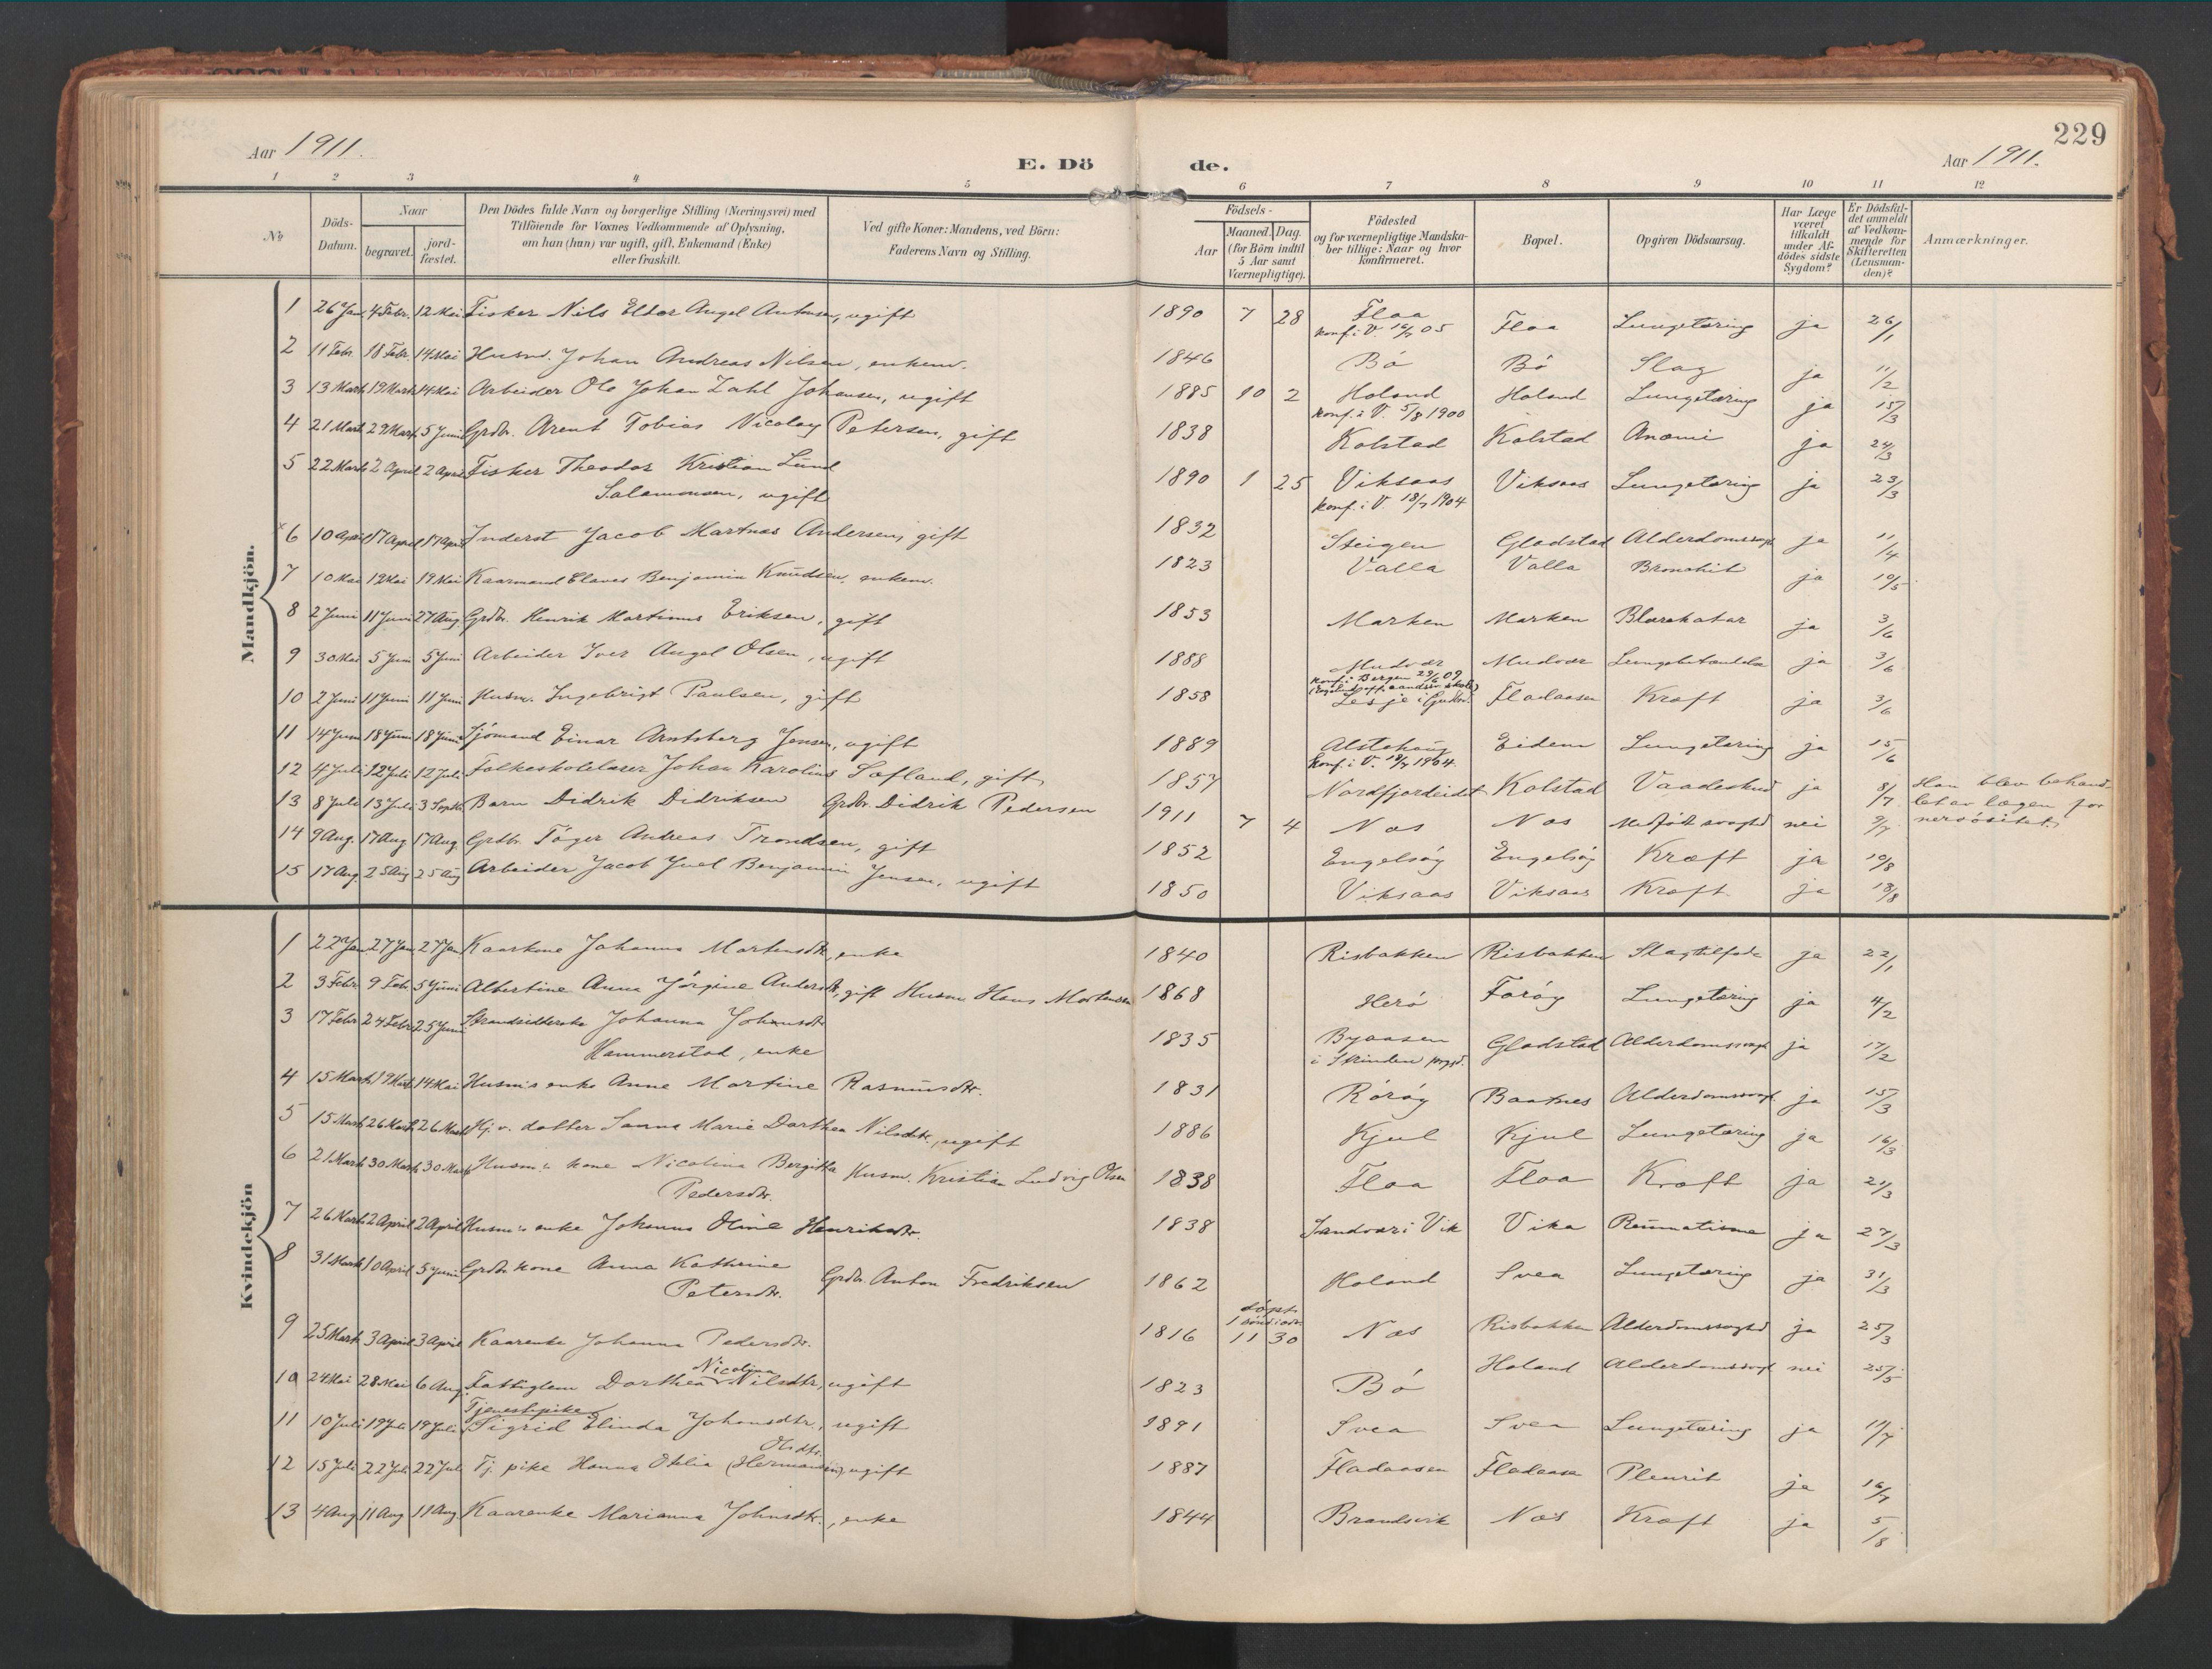 229
Aar 1911.
E. Dö de.
Aar 1911.
1 2 3 4 5 6 7 8 9 10 11 12
No
Döds-Datum.
Naar
begravet.
jord-fæstet.
Den Dödes fulde Navn og borgerlige Stilling (Næringsvei) med
Tilföiende for Voxnes Vedkommende af Oplysning,
om han (hun) var ugift, gift, Enkemand (Enke)
eller fraskilt.
Ved gifte Koner: Mandens, ved Börn:
Faderens Navn og Stilling.
Födsels-
Aar
Maaned. Dag.
(for Börn indtil
5 Aar samt
Værnepligtige).
Födested
og for værnepligtige Mandska-
ber tillige: Naar og hvor
konfirmeret.
Bopæl.
Opgiven Dödsaarsag.
Har Læge
været
tilkaldt
under Af-
dödes sidste
Sygdom?
Er Dödsfal-
det anmeldt
af Vedkom-
mende for
Skifteretten
(Lensman-
den)?
Anmærkninger.
Mandkjön.
1 26 Jan. 4 Febr. 12 Mai Fisker Nils Eldor Angel Antonsen, ugift 1890 7 28 Floa Floa Lungetæring ja 26/1
konf. i V. 16/7 05
2 11 Febr. 18 Febr. 14 Mai Husm. Johan Andreas Nilsen, enkem. 1846 Bö Bö Slag ja 11/2
3 13 Marts 19 Marts 14 Mai Arbeider Ole Johan Zahl Johansen, ugift 1885 10 2 Holand Holand Lungetæring ja 15/3
konf. i V. 5/8 1900
4 21 Mart. 29 Mart. 5 Juni Grdbr. Arent Tobias Nicolay Petersen, gift 1838 Kolstad Kolstad Anæmi ja 24/3
5 22 Marts 2 April 2 April Fisker Theodor Kristian Lund
Salamonsen, ugift 1890 1 25 Viksaas Viksaas Lungetæring ja 23/3
konf. i V. 18/7 1904
6 10 April 17 April 17 April Inderst Jacob Martnas Andersen, gift 1832 Steigen Gladstad Alderdomssvagh. ja 11/4
7 10 Mai 19 Mai 19 Mai Kaarmand Claves Benjamin Knudsen, enkem. 1823 Valla Valla Bronchit ja 10/5
8 2 Juni 11 Juni 27 Aug. Grdbr. Henrik Martinus Eriksen, gift 1853 Marken Marken Blærekatar ja 3/6
9 30 Mai 5 Juni 5 Juni Arbeider Iver Angel Olsen, ugift 1888 Mudvær Mudvær Lungebetændelse ja 3/6
konf. i Bergen 29/6 09
10 2 Juni 11 Juni 11 Juni Husm. Ingebrigt Paulsen, gift 1858 Lesje i Gudbr. Fladaasen Kræft ja 3/6
11 14 Juni 18 Juni 18 Juni Sjömand Einar Arntsberg Jensen, ugift 1889 Alstahaug Eidem Lungetæring ja 15/6
konf. i V. 18/7 1904.
12 4 Juli 12 Juli 12 Juli Folkeskolelærer Johan Karolius Sofland, gift 1857 Nordfjordeidet Kolstad Vaadeskud ja 8/7 Han blev behand-
let av lægen for
nervösitet.
13 8 Juli 13 Juli 3 Septb. Barn Didrik Didriksen Grdbr. Didrik Pedersen 1911 7 4 Næs Næs Medfödt svaghed nei 9/7
14 9 Aug. 17 Aug 17 Aug Grdbr. Töger Andreas Trondsen, gift 1852 Engelsöy Engelsöy Kræft ja 10/8
15 17 Aug. 25 Aug 25 Aug Arbeider Jacob Juel Benjamin Jensen, ugift 1850 Viksaas Viksaas Kræft ja 18/8
Kvindekjön
1 22 Jan 27 Jan 27 Jan Kaarkone Johanna Mortensdtr., enke 1840 Risbakken Risbakken Slagtilfælde ja 22/1
2 3 Febr 9 Feb. 5 Juni Albertine Anna Jörgine Andersdtr., gift Husm Hans Mortensen 1868 Herö Foröy Lungetæring ja 4/2
3 17 Febr 24 Febr 25 Juni Strandsidderske Johanna Johnsdtr
Hammerstad, enke 1835 Byaasen Gladstad Alderdomssvagh. ja 17/2
i Strinden prgjd.
4 15 Marts 19 Marts 14 Mai Husm:s enke Anne Martine Rasmusdtr. 1831 Röröy Baatnes Alderdomssvagh. ja 15/3
5 15 Marts 26 Marts 26 Marts Kj. v. datter Sanna Marie Dorthea Nilsdtr., ugift 1886 Kjul Kjul Lungetæring ja 16/3
6 21 Marts 30 Marts 30 Marts Husm:s kone Nicolina Bergitha
Pedersdtr. Husm. Kristian Ludvig Olsen 1838 Floa Floa Kræft ja 21/3
7 26 Marts 2 April 2 April Husm:s enke Johanna Oline Henriksdtr. 1838 Sandvær i Vik Vika Reumatisme ja 27/3
8 31 Marts 10 April 5 Juni Grdbr. kone Anna Kathrine
Petersdtr. Grdbr. Anton Fredriksen 1862 Holand Svea Lungetæring ja 31/3
döpt
1 sönd i adv.
9 25 Marts 3 April 3 April Kaarenke Johanna Pedersdtr. 1816 11 30 Næs Risbakken Alderdomssvaghed ja 25/3
10 24 Mai 28 Mai 6 Aug. Fattiglem Dorthea Nicolina Nilsdtr., ugift 1823 Bö Holand Alderdomssvagh. nei 25/5
Tjenestepike
11 10 Juli 19 Juli 19 Juli Sigrid Elinda Johansdtr., ugift 1891 Svea Svea Lungetæring ja 11/7
Olsdtr.
12 15 Juli 22 Juli 22 Juli Tj. pike Hanna Otelia (Hermansen), ugift 1887 Fladaasen Fladaasen Pleurit ja 16/7
13 4 Aug 11 Aug 11 Aug Kaarenke Marianna Johnsdtr., enke 1844 Brandsvik Næs Kræft ja 5/8